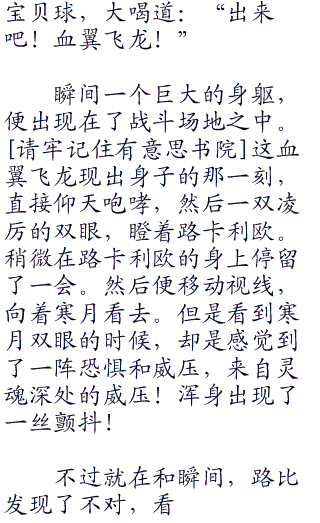 宝贝球，大喝道：“出来
吧！血翼飞龙！”
瞬间一个巨大的身躯，
便出现在了战斗场地之中。
[请牢记住有意思书院]这血
翼飞龙现出身子的那一刻，
直接仰天咆哮，然后一双凌
厉的双眼，瞪着路卡利欧。
稍微在路卡利欧的身上停留
了一会。然后便移动视线，
向着寒月看去。但是看到寒
月双眼的时候，却是感觉到
了一阵恐惧和威压，来自灵
魂深处的威压！浑身出现了
一丝颤抖！
不过就在和瞬间，路比
发现了不对，看